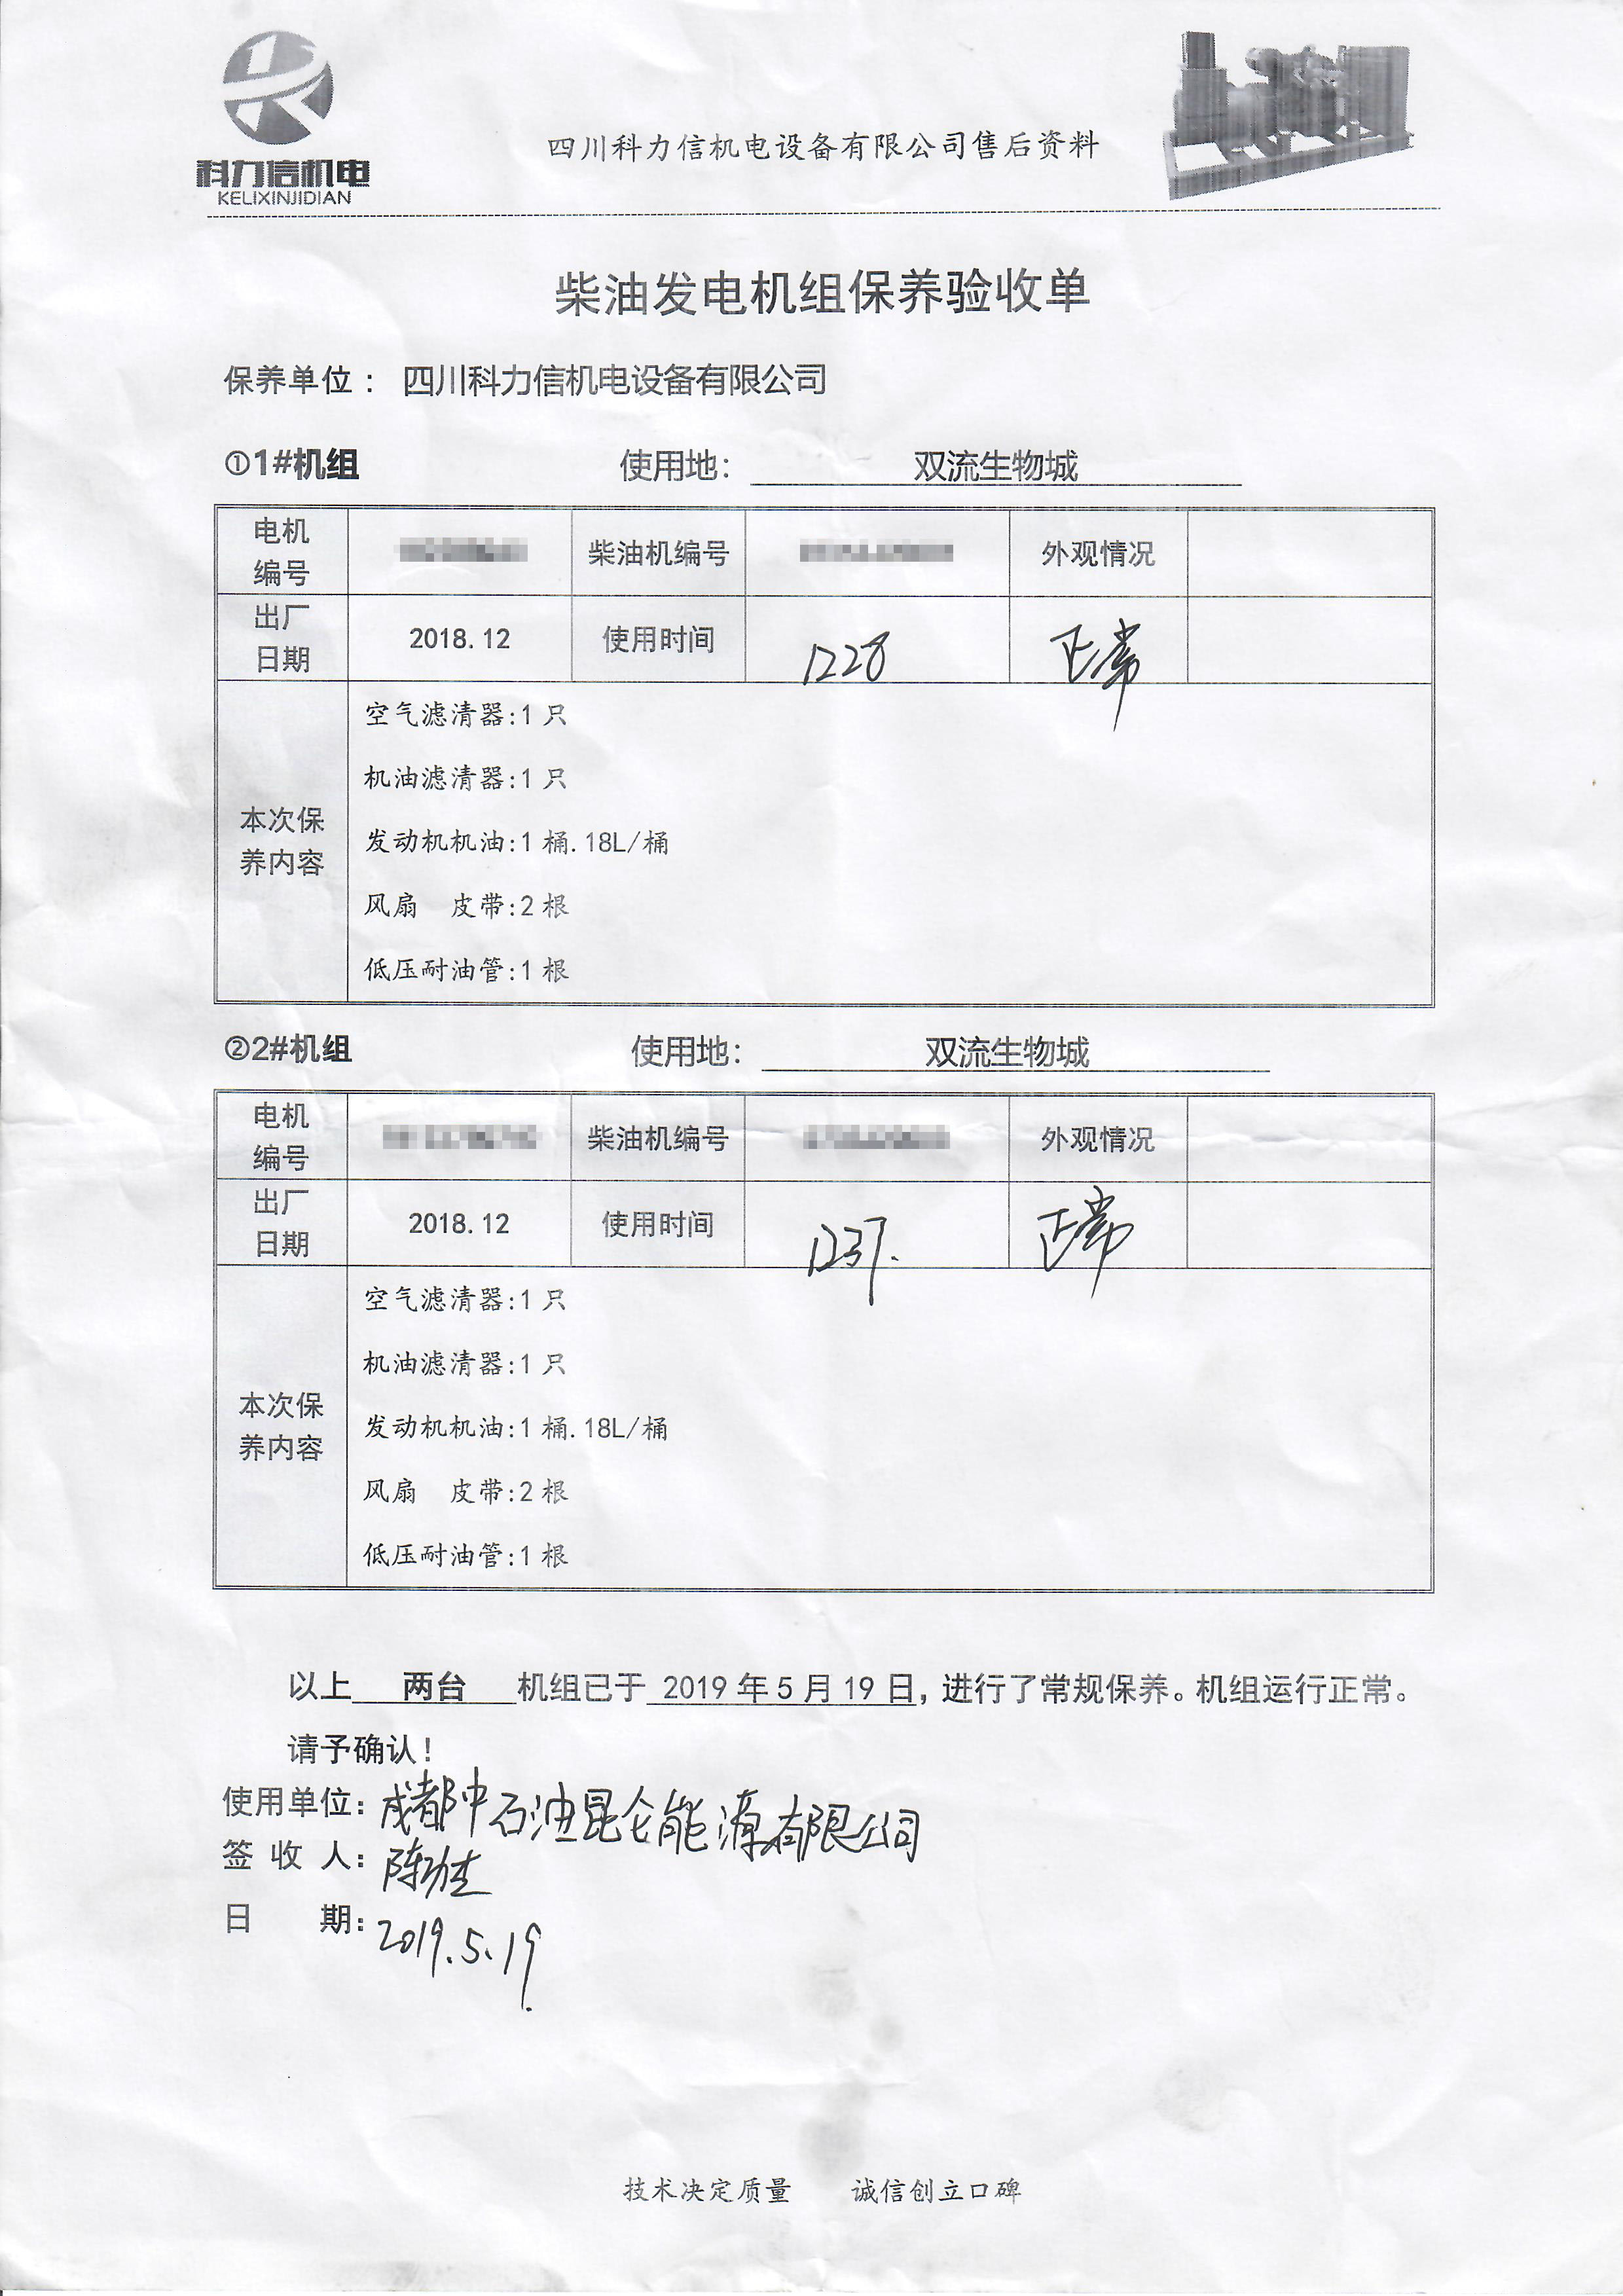 科力信机电
KELIXINJIDIAN
四川科力信机电设备有限公司售后资料
柴油发电机组保养验收单
保养单位： 四川科力信机电设备有限公司
①1#机组 使用地： 双流生物城
电机编号 柴油机编号 外观情况
出厂日期 2018.12 使用时间 1228 正常
本次保养内容
空气滤清器:1 只
机油滤清器:1 只
发动机机油:1 桶.18L/桶
风扇 皮带:2 根
低压耐油管:1 根
②2#机组 使用地： 双流生物城
电机编号 柴油机编号 外观情况
出厂日期 2018.12 使用时间 1237. 正常
本次保养内容
空气滤清器:1 只
机油滤清器:1 只
发动机机油:1 桶.18L/桶
风扇 皮带:2 根
低压耐油管:1 根
以上 两台 机组已于 2019 年 5 月 19 日，进行了常规保养。机组运行正常。
请予确认！
使用单位：成都中石油昆仑能源有限公司
签 收 人：
日 期：2019.5.19.
技术决定质量 诚信创立口碑